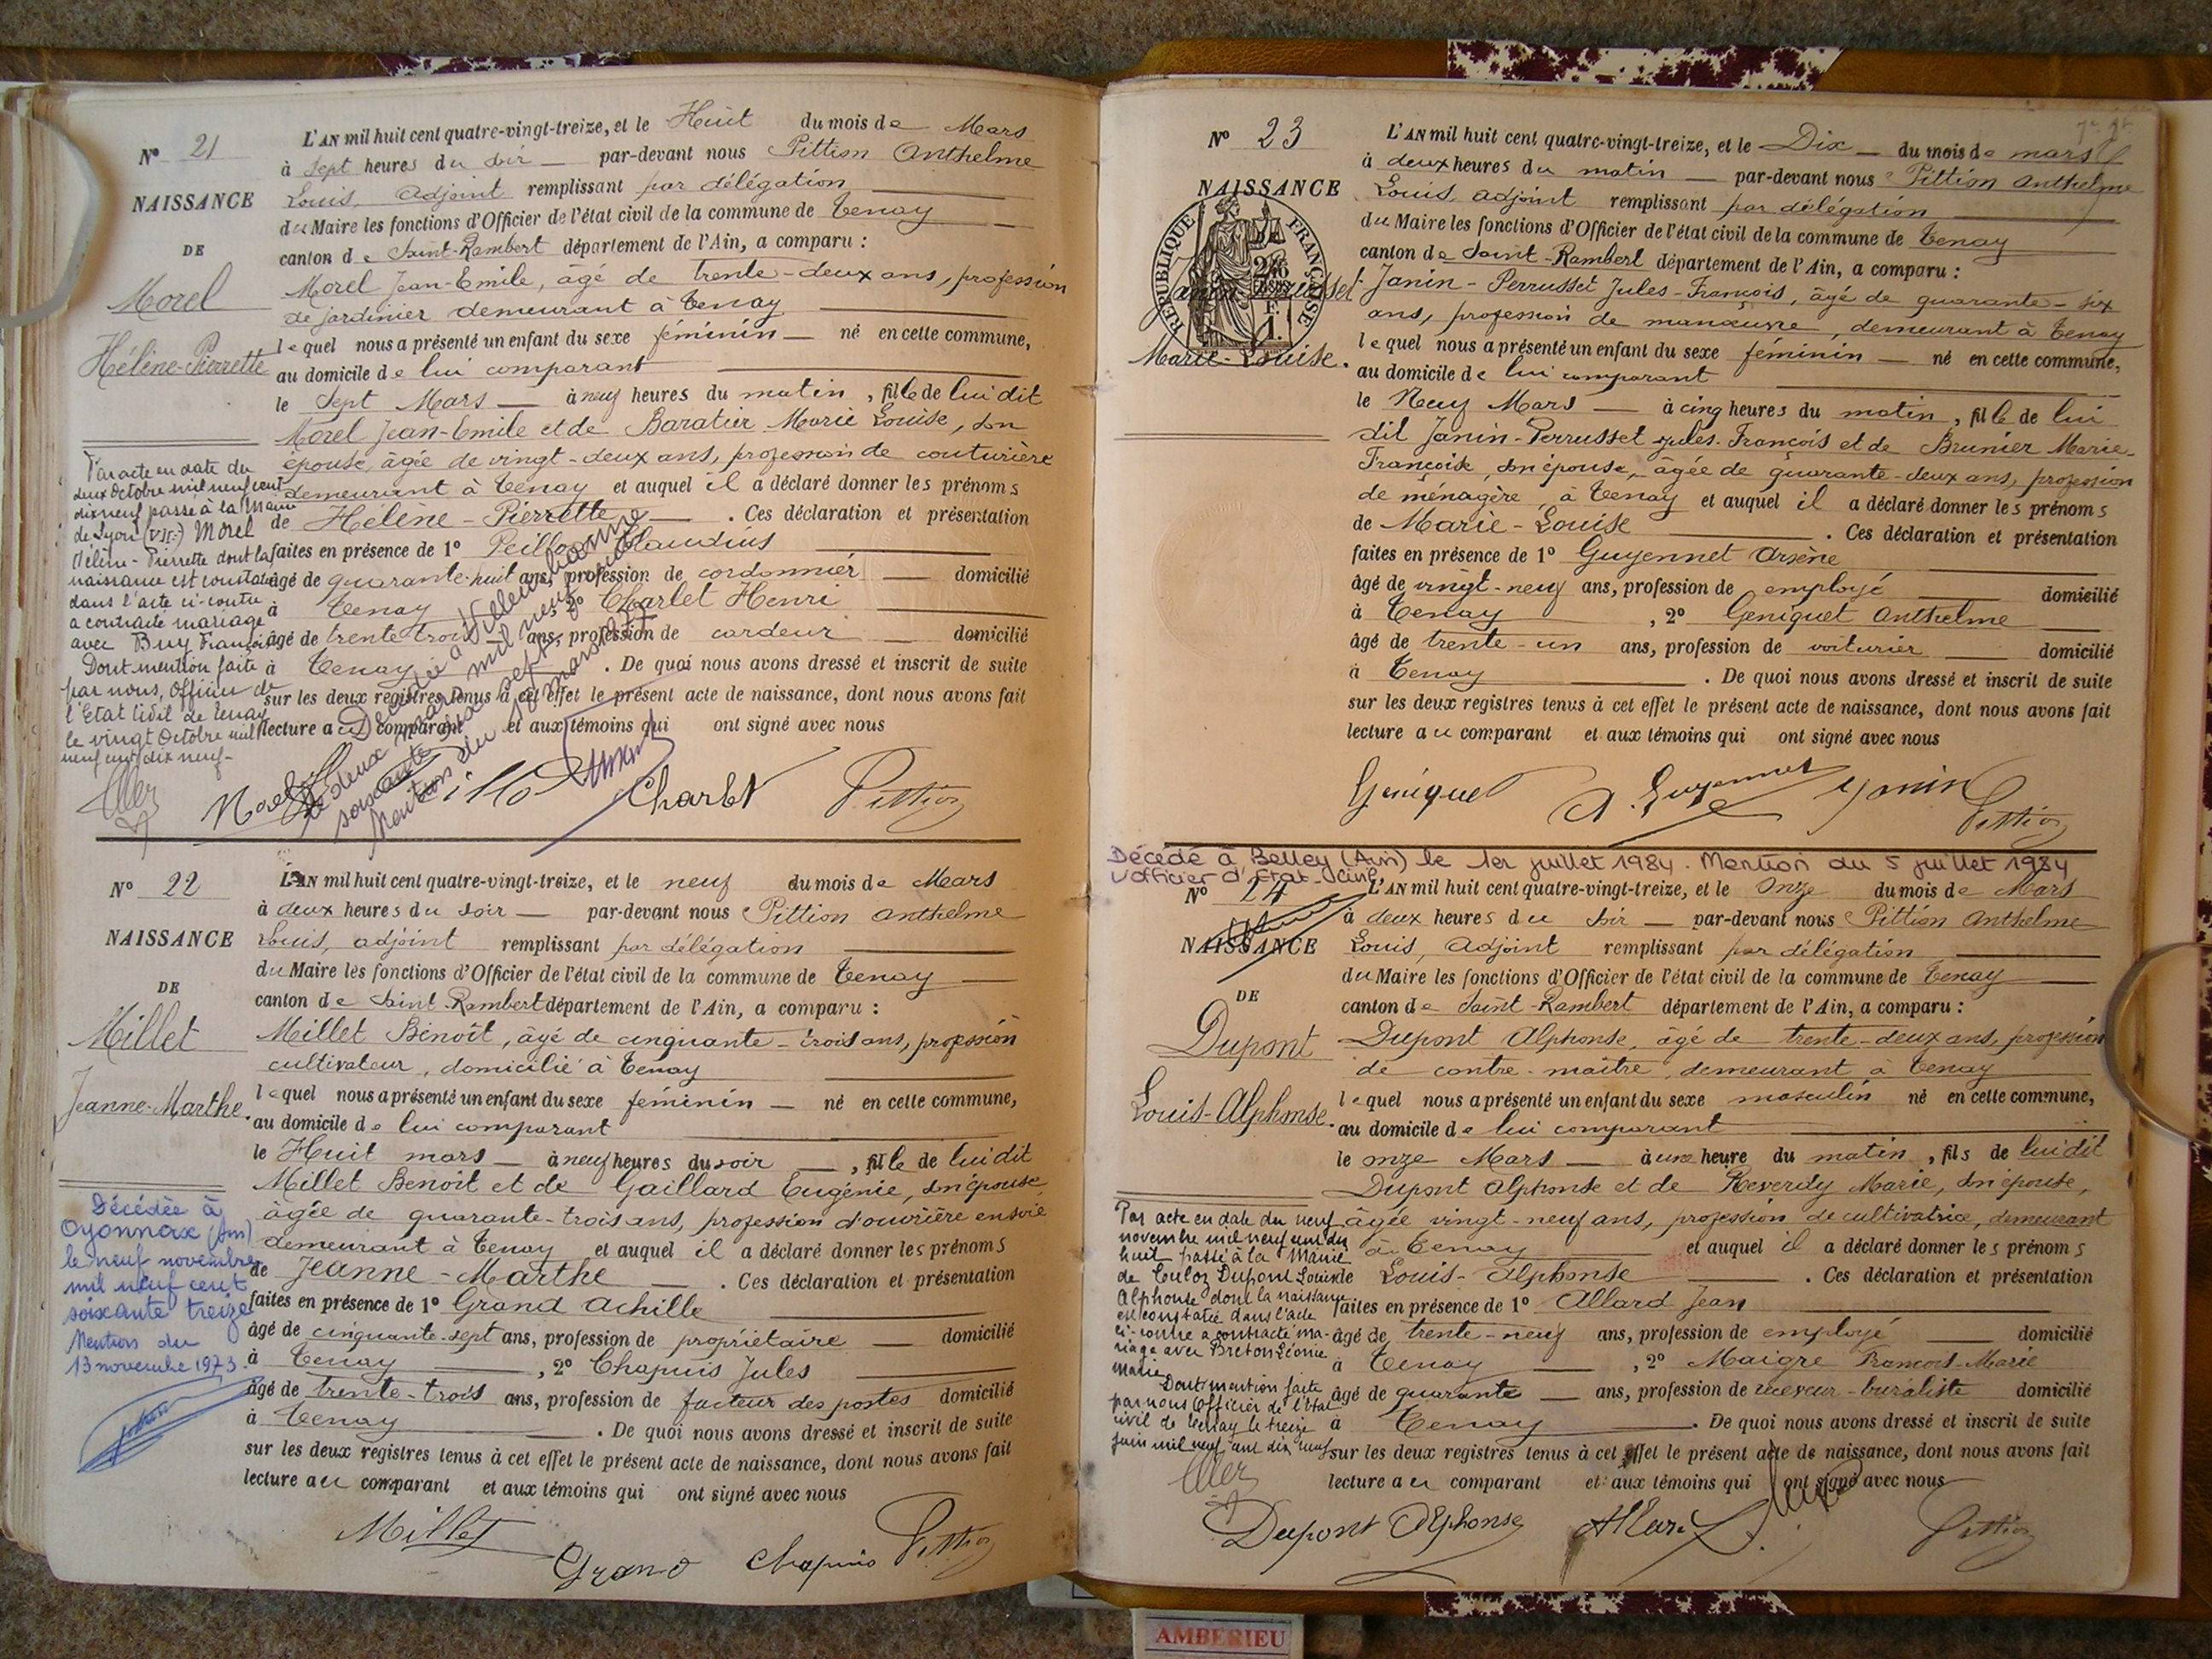 Nº 21
NAISSANCE
DE
Morel
Hélène-Pierrette
L'AN mil huit cent quatre-vingt-treize, et le Huit du mois de Mars
à Sept heures du soir — par-devant nous Pittion Anthelme
Louis, Adjoint remplissant par délégation
du Maire les fonctions d'Officier de l'état civil de la commune de Tenay
canton de Saint-Rambert département de l'Ain, a comparu :
Morel Jean-Emile, agé de trente-deux ans, profession
de jardinier demeurant à Tenay
lequel nous a présenté un enfant du sexe féminin — né en cette commune,
au domicile de lui comparant
le Sept Mars — à neuf heures du matin, fille de lui dit
Morel Jean-Emile et de Baratier Marie Louise, son
épouse, âgée de vingt-deux ans, profession de couturière
demeurant à Tenay et auquel il a déclaré donner les prénoms
de Hélène-Pierrette — . Ces déclaration et présentation
faites en présence de 1º Peillon Claudius
âgé de quarante-huit ans, profession de cordonnier — domicilié
à Tenay , 2º Charlet Henri
âgé de trente trois ans, profession de cardeur domicilié
à Tenay . De quoi nous avons dressé et inscrit de suite
sur les deux registres tenus à cet effet le présent acte de naissance, dont nous avons fait
lecture au comparant et aux témoins qui ont signé avec nous
Par acte en date du
deux Octobre mil neuf cent
dix neuf passé à la Mairie
de Lyon (VII) Morel
Hélène-Pierrette dont la
naissance est constatée
dans l'acte ci-contre
a contracté mariage
avec Buy François
Dont mention faite
par nous, Officier de
l'Etat Civil de Tenay
le vingt Octobre mil
neuf cent dix neuf-
Décédée à Villeurbanne
le deux mars mil neuf cent
soixante sept
Mention du mars
Morel
Charlet
Pittion
Nº 22
NAISSANCE
DE
Millet
Jeanne-Marthe.
L'AN mil huit cent quatre-vingt-treize, et le neuf du mois de Mars
à deux heures du soir — par-devant nous Pittion Anthelme
Louis, adjoint remplissant par délégation
du Maire les fonctions d'Officier de l'état civil de la commune de Tenay
canton de Saint-Rambert département de l'Ain, a comparu :
Millet Benoît, âgé de cinquante-trois ans, profession
cultivateur, domicilié à Tenay
lequel nous a présenté un enfant du sexe féminin — né en cette commune,
au domicile de lui comparant
le Huit mars — à neuf heures du soir — , fille de lui dit
Millet Benoît et de Gaillard Eugénie, son épouse,
âgée de quarante-trois ans, profession d'ouvrière en soie
demeurant à Tenay et auquel il a déclaré donner les prénoms
de Jeanne-Marthe — . Ces déclaration et présentation
faites en présence de 1º Grand Achille
âgé de cinquante-sept ans, profession de propriétaire — domicilié
à Tenay , 2º Chapuis Jules
âgé de trente-trois ans, profession de facteur des postes domicilié
à Tenay . De quoi nous avons dressé et inscrit de suite
sur les deux registres tenus à cet effet le présent acte de naissance, dont nous avons fait
lecture au comparant et aux témoins qui ont signé avec nous
Décédée à
Oyonnax (Ain)
le neuf novembre
mil neuf cent
soixante treize
Mention du
13 novembre 1973.
Millet
Grand Chapuis Pittion
Nº 23
NAISSANCE
RÉPUBLIQUE FRANÇAISE
Janin-Perrusset
Marie-Louise.
L'AN mil huit cent quatre-vingt-treize, et le Dix — du mois de mars
à deux heures du matin — par-devant nous Pittion Anthelme
Louis, adjoint remplissant par délégation
du Maire les fonctions d'Officier de l'état civil de la commune de Tenay
canton de Saint-Rambert département de l'Ain, a comparu :
Janin-Perrusset Jules-François, âgé de quarante-six
ans, profession de manœuvre, demeurant à Tenay
lequel nous a présenté un enfant du sexe féminin — né en cette commune,
au domicile de lui comparant
le Neuf Mars — à cinq heures du matin, fille de lui
dit Janin-Perrusset Jules-François et de Brunier Marie-
Françoise, son épouse, âgée de quarante-deux ans, profession
de ménagère, à Tenay et auquel il a déclaré donner les prénoms
de Marie-Louise . Ces déclaration et présentation
faites en présence de 1º Guyennet Arsène
âgé de vingt-neuf ans, profession de employé — domicilié
à Tenay , 2º Géniquet Anthelme
âgé de trente-un ans, profession de voiturier — domicilié
à Tenay . De quoi nous avons dressé et inscrit de suite
sur les deux registres tenus à cet effet le présent acte de naissance, dont nous avons fait
lecture au comparant et aux témoins qui ont signé avec nous
Géniquet A. Guyennet Janin
Pittion
Décédé à Belley (Ain) le 1er juillet 1984. Mention du 5 juillet 1984
L'officier d'Etat-Civil
Nº 24
NAISSANCE
DE
Dupont
Louis-Alphonse.
L'AN mil huit cent quatre-vingt-treize, et le Onze du mois de Mars
à deux heures du soir — par-devant nous Pittion Anthelme
Louis, Adjoint remplissant par délégation
du Maire les fonctions d'Officier de l'état civil de la commune de Tenay
canton de Saint-Rambert département de l'Ain, a comparu :
Dupont Alphonse, âgé de trente-deux ans, profession
de contre-maître, demeurant à Tenay
lequel nous a présenté un enfant du sexe masculin né en cette commune,
au domicile de lui comparant
le onze Mars — à une heure du matin, fils de lui dit
Dupont Alphonse et de Reverdy Marie, son épouse,
âgée vingt-neuf ans, profession de cultivatrice, demeurant
à Tenay et auquel il a déclaré donner les prénoms
de Louis-Alphonse . Ces déclaration et présentation
faites en présence de 1º Allard Jean
âgé de trente-neuf ans, profession de employé domicilié
à Tenay , 2º Maigre François-Marie
âgé de quarante — ans, profession de receveur-buraliste domicilié
à Tenay . De quoi nous avons dressé et inscrit de suite
sur les deux registres tenus à cet effet le présent acte de naissance, dont nous avons fait
lecture au comparant et aux témoins qui ont signé avec nous
Par acte en date du neuf
novembre mil neuf cent dix
huit passé à la Mairie
de Culoz Dupont Louis
Alphonse dont la naissance
est constatée dans l'acte
ci-contre a contracté ma-
riage avec Breton Léonie
Marie
Dont mention faite
par nous Officier de l'Etat
civil de Tenay le treize
juin mil neuf cent dix neuf
Dupont Alphonse Allard
Pittion
AMBERIEU